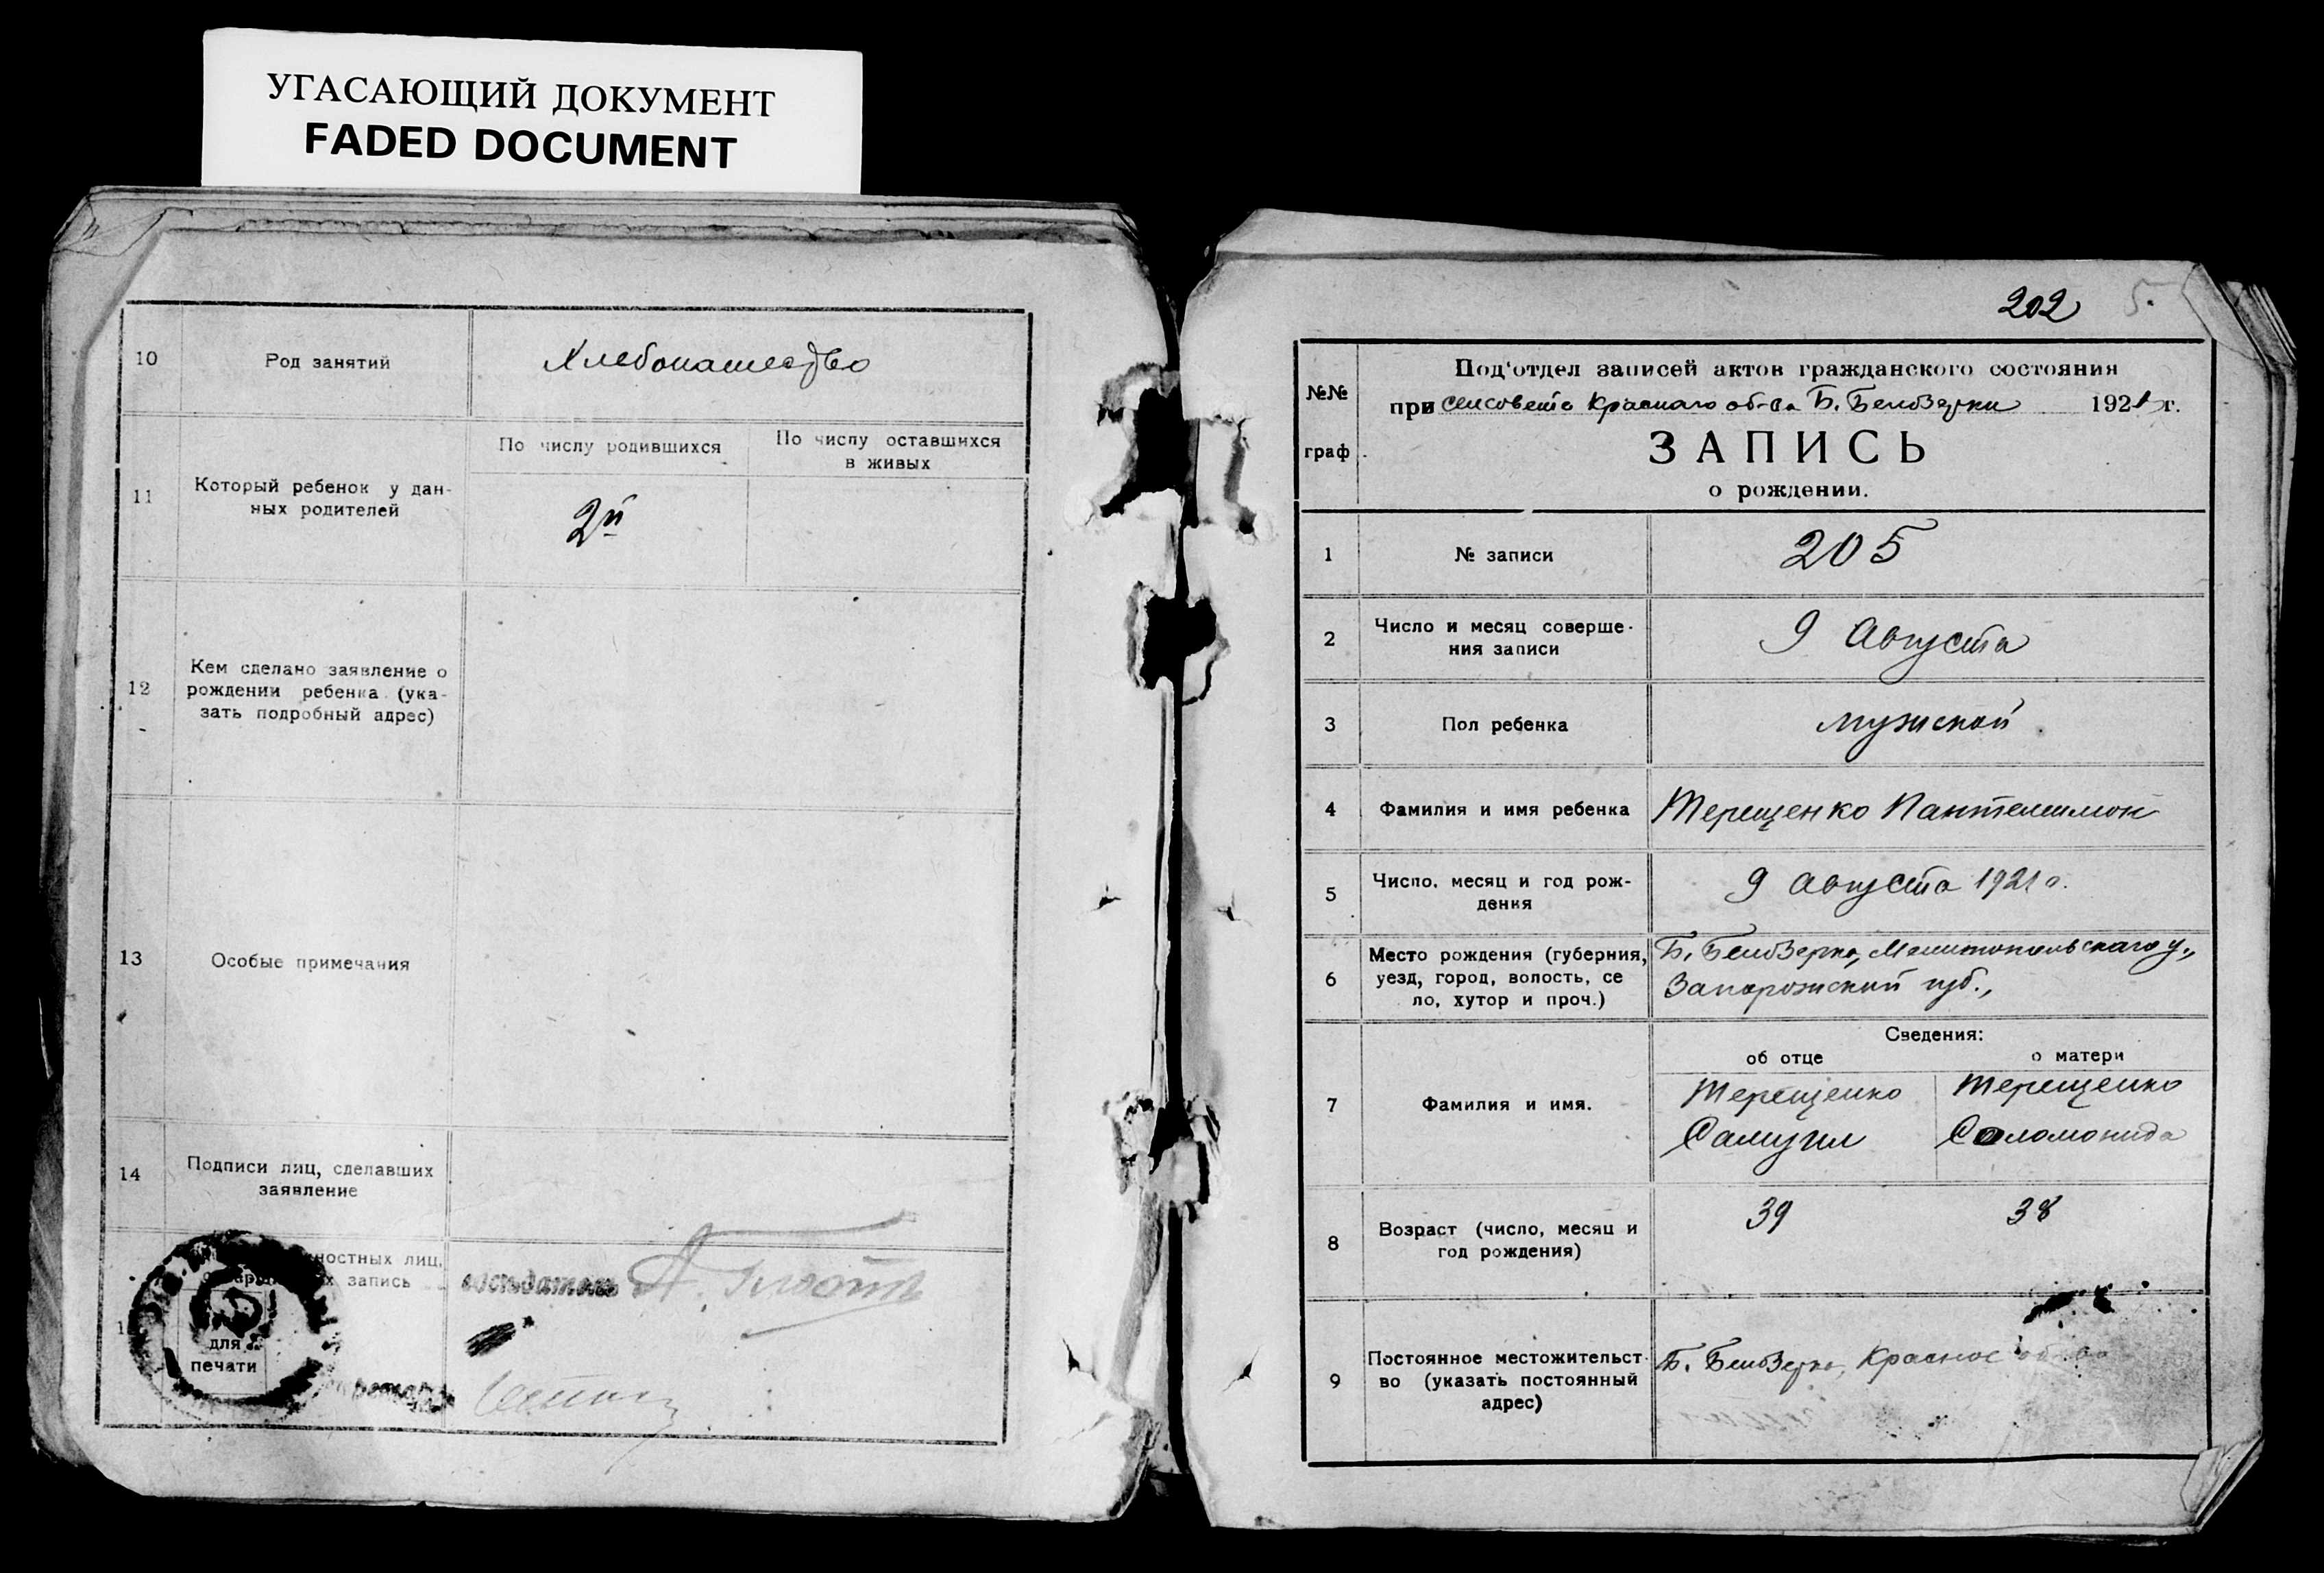 УГАСАЮЩИЙ ДОКУМЕНТ
FADED DOCUMENT
10
Род занятий
Хлебопашество
11
Который ребенок у дан-
ных родителей
По числу родившихся
По числу оставшихся
в живых
2й
12
Кем сделано заявление о
рождении ребенка (ука-
зать подробный адрес)
13
Особые примечания
14
Подписи лиц, сделавших
заявление
ностных лиц,
запись
для
печати
202
5.
№№
граф
Под'отдел записей актов гражданского состояния
при сельсовете Краснаго об-ва Б. Белозерки 1921 г.
ЗАПИСЬ
о рождении.
1
№ записи
205
2
Число и месяц соверше-
ния записи
9 Августа
3
Пол ребенка
мужской
4
Фамилия и имя ребенка
Терещенко Пантелеимон
5
Число, месяц и год рож-
дения
9 Августа 1921 г.
6
Место рождения (губерния,
уезд, город, волость, се
ло, хутор и проч.)
Б. Белозерка, Мелитопольскаго у.,
Запорожский губ.,
Сведения:
об отце
о матери
7
Фамилия и имя.
Терещенко
Самуил
Терещенко
Соломонида
8
Возраст (число, месяц и
год рождения)
39
38
9
Постоянное местожительст-
во (указать постоянный
адрес)
Б. Белозерка, Красное